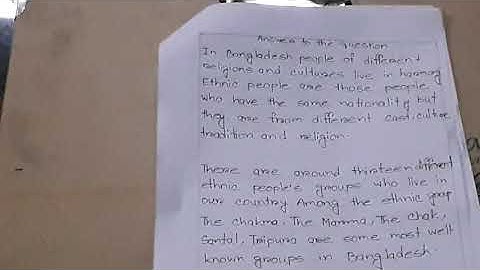 Answer to the question
In Bangladesh people of different
religions and cultures live in harmony
Ethnic people are those people
who have the same nationality but
they are from different cast, culture
tradition and religion.
There are around thirteen different
ethnic people's groups who live in
our country Among the ethnic group
The chakma, The Marma, The Chak,
Santal, Tripura are some most well
known groups in Bangladesh.